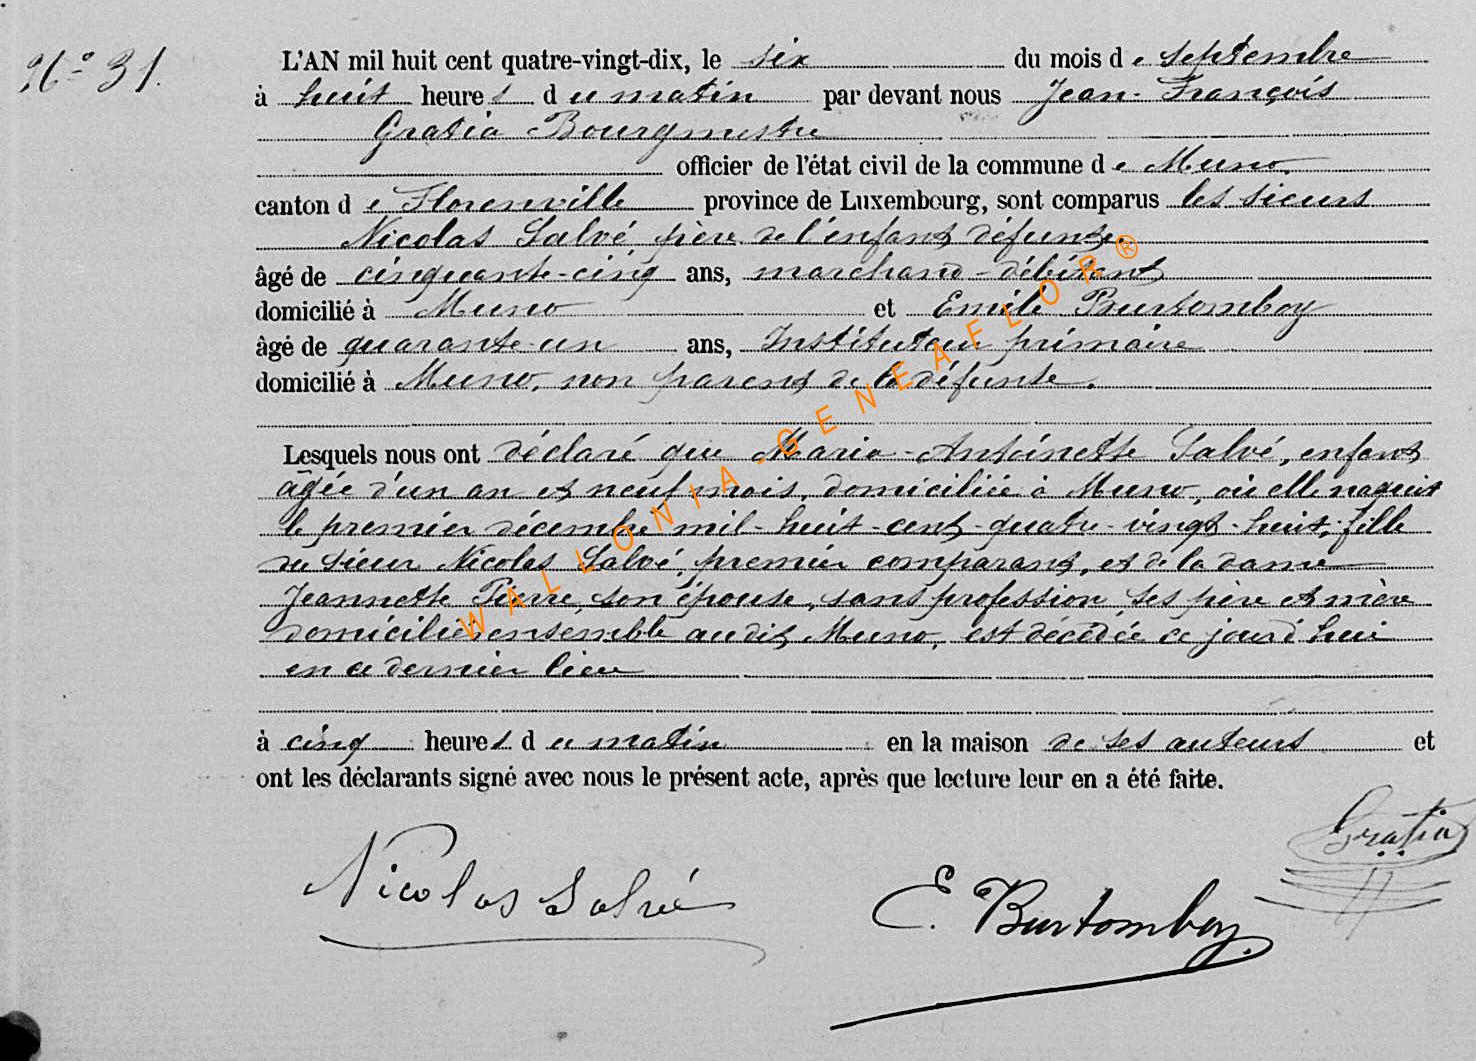 Nº 31.
L'AN mil huit cent quatre-vingt-dix, le six du mois de septembre
à huit heures du matin par devant nous Jean-François
Gratia Bourgmestre
officier de l'état civil de la commune de Muno,
canton de Florenville province de Luxembourg, sont comparus les sieurs
Nicolas Salvé, père de l'enfant défunte,
âgé de cinquante-cinq ans, marchand-débitant
domicilié à Muno et Emile Burtomboy
âgé de quarante-un ans, Instituteur primaire
domicilié à Muno, non parent de la défunte.
Lesquels nous ont déclaré que Marie-Antoinette Salvé, enfant
âgée d'un an et neuf mois, domiciliée à Muno, où elle naquit
le premier décembre mil-huit-cent-quatre-vingt-huit, fille
du sieur Nicolas Salvé, premier comparant, et de la dame
Jeannette Pierre, son épouse, sans profession, ses père et mère
domiciliés ensemble audit Muno, est décédée ce jourd'hui
en ce dernier lieu
à cinq heures du matin en la maison de ses auteurs et
ont les déclarants signé avec nous le présent acte, après que lecture leur en a été faite.
Gratia
Nicolas Salvé
E. Burtomboy
WALLONIA-GENEAFLOR®